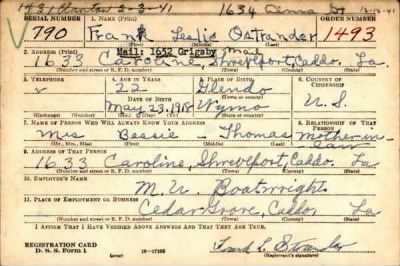 1431 Stanton 3-3-41 1634 Cenna St 12-17-41
SERIAL NUMBER 1. NAME (Print) ORDER NUMBER
V 790 Frank Leslie Ostrander 1493
(First) (Middle) (Last)
Mail: 1652 Grigsby mail
2. ADDRESS (Print)
1633 Caroline, Shreveport, Caddo. La
(Number and street or R. F. D. number) (Town) (County) (State)
3. TELEPHONE 4. AGE IN YEARS 5. PLACE OF BIRTH 6. COUNTRY OF CITIZENSHIP
v 22 Glendo
DATE OF BIRTH (Town or county)
May 23, 1918 Wymo U. S.
(Exchange) (Number) (Mo.) (Day) (Yr.) (State or country)
7. NAME OF PERSON WHO WILL ALWAYS KNOW YOUR ADDRESS 8. RELATIONSHIP OF THAT PERSON
Mrs Bessie - Thomas Mother in law
(Mr., Mrs., Miss) (First) (Middle) (Last)
9. ADDRESS OF THAT PERSON
1633 Caroline, Shreveport, Caddo. La
(Number and street or R. F. D. number) (Town) (County) (State)
10. EMPLOYER'S NAME
M. U. Boatwright
11. PLACE OF EMPLOYMENT OR BUSINESS
Cedar Grove, Caddo La
(Number and street or R. F. D. number) (Town) (County) (State)
I AFFIRM THAT I HAVE VERIFIED ABOVE ANSWERS AND THAT THEY ARE TRUE.
REGISTRATION CARD
D. S. S. Form 1 16-17105 (Registrant's signature)